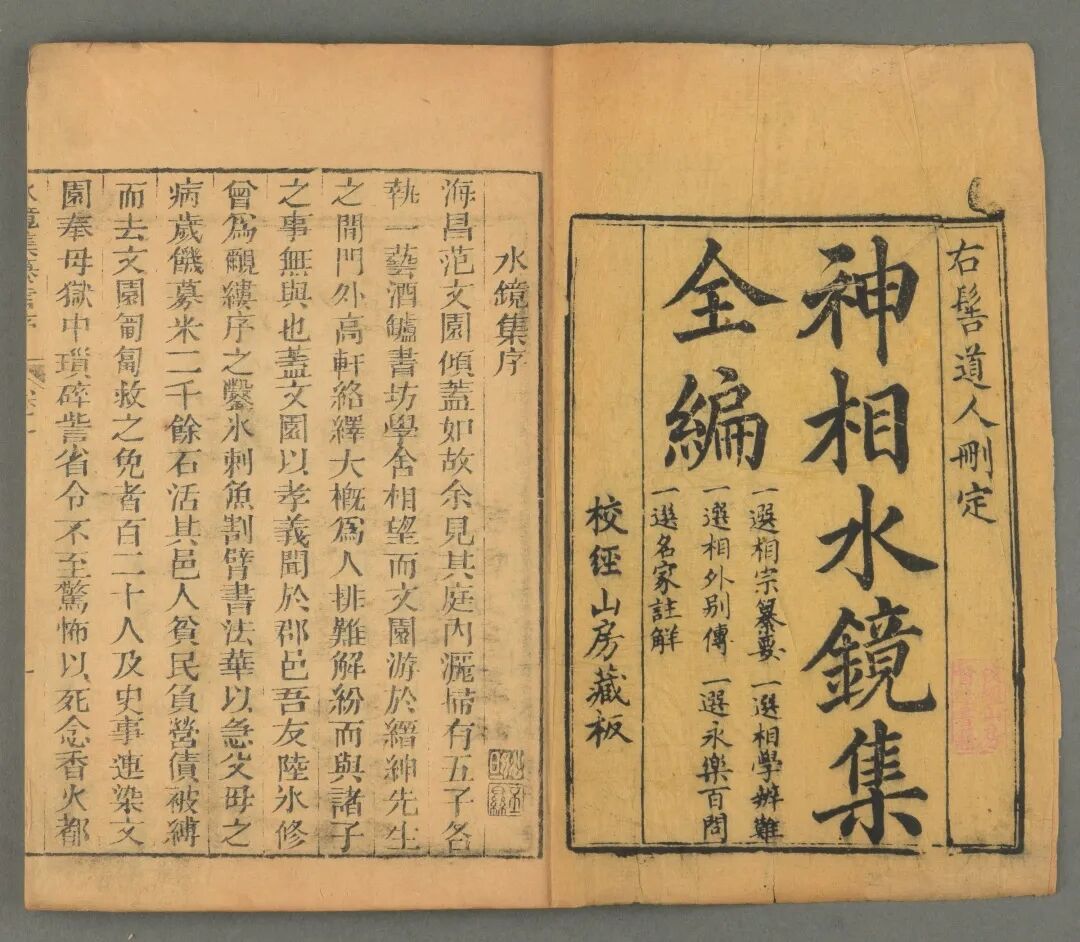 右髻道人刪定
神相水鏡集
全編
一選相宗纂要 一選相學辦難
一選相外别傳 一選永樂百問
一選名家註解
校經山房藏板
水鏡集序
海昌范文園傾蓋如故余見其庭内灑掃有五子各
執一藝酒鑪書坊學舍相望而文園游於縉紳先生
之間門外高軒絡繹大概爲人排難解紛而與諸子
之事無與也蓋文園以孝義聞於郡邑吾友陸氷修
曾爲覼縷序之鑿氷刺魚割臂書法華以急父母之
病歲饑募米二千餘石活其邑人貧民負營債被縛
而去文園匍匐救之免者百二十人及史事連染文
園奉母獄中瑣碎訾省令不至驚怖以死念香火都